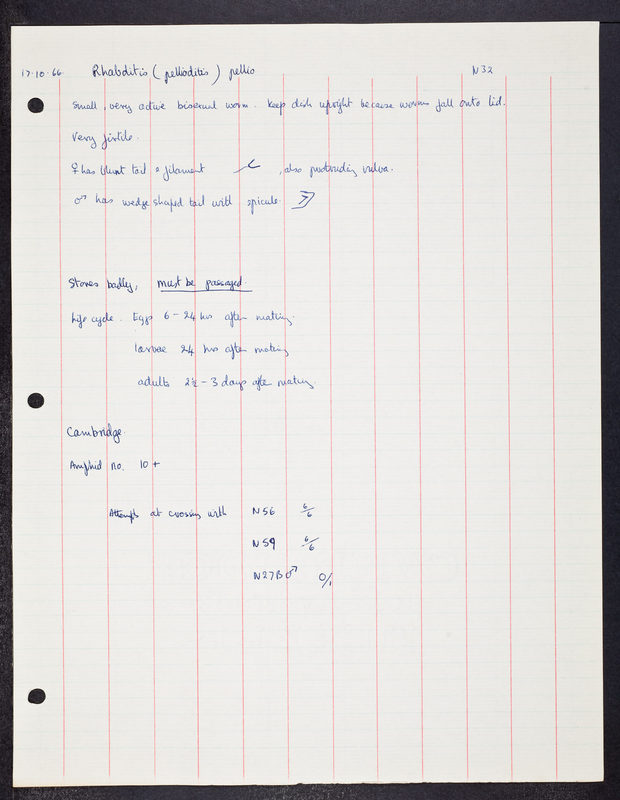 17-10-66 Rhabditis (pellioditis) pellio N32
Small, very active bisexual worm. Keep dish upright because worms fall onto lid.
Very fertile.
♀ has blunt tail & filament , also protruding vulva.
♂ has wedge shaped tail with spicule.
Stores badly, must be passaged.
Life cycle. Eggs 6 - 24 hrs after mating.
larvae 24 hrs after mating
adults 2½ - 3 days after mating.
Cambridge.
Amphid no. 10 +
Attempts at crossing with N56 6/6
N59 6/6
N27B ♂ 0/1